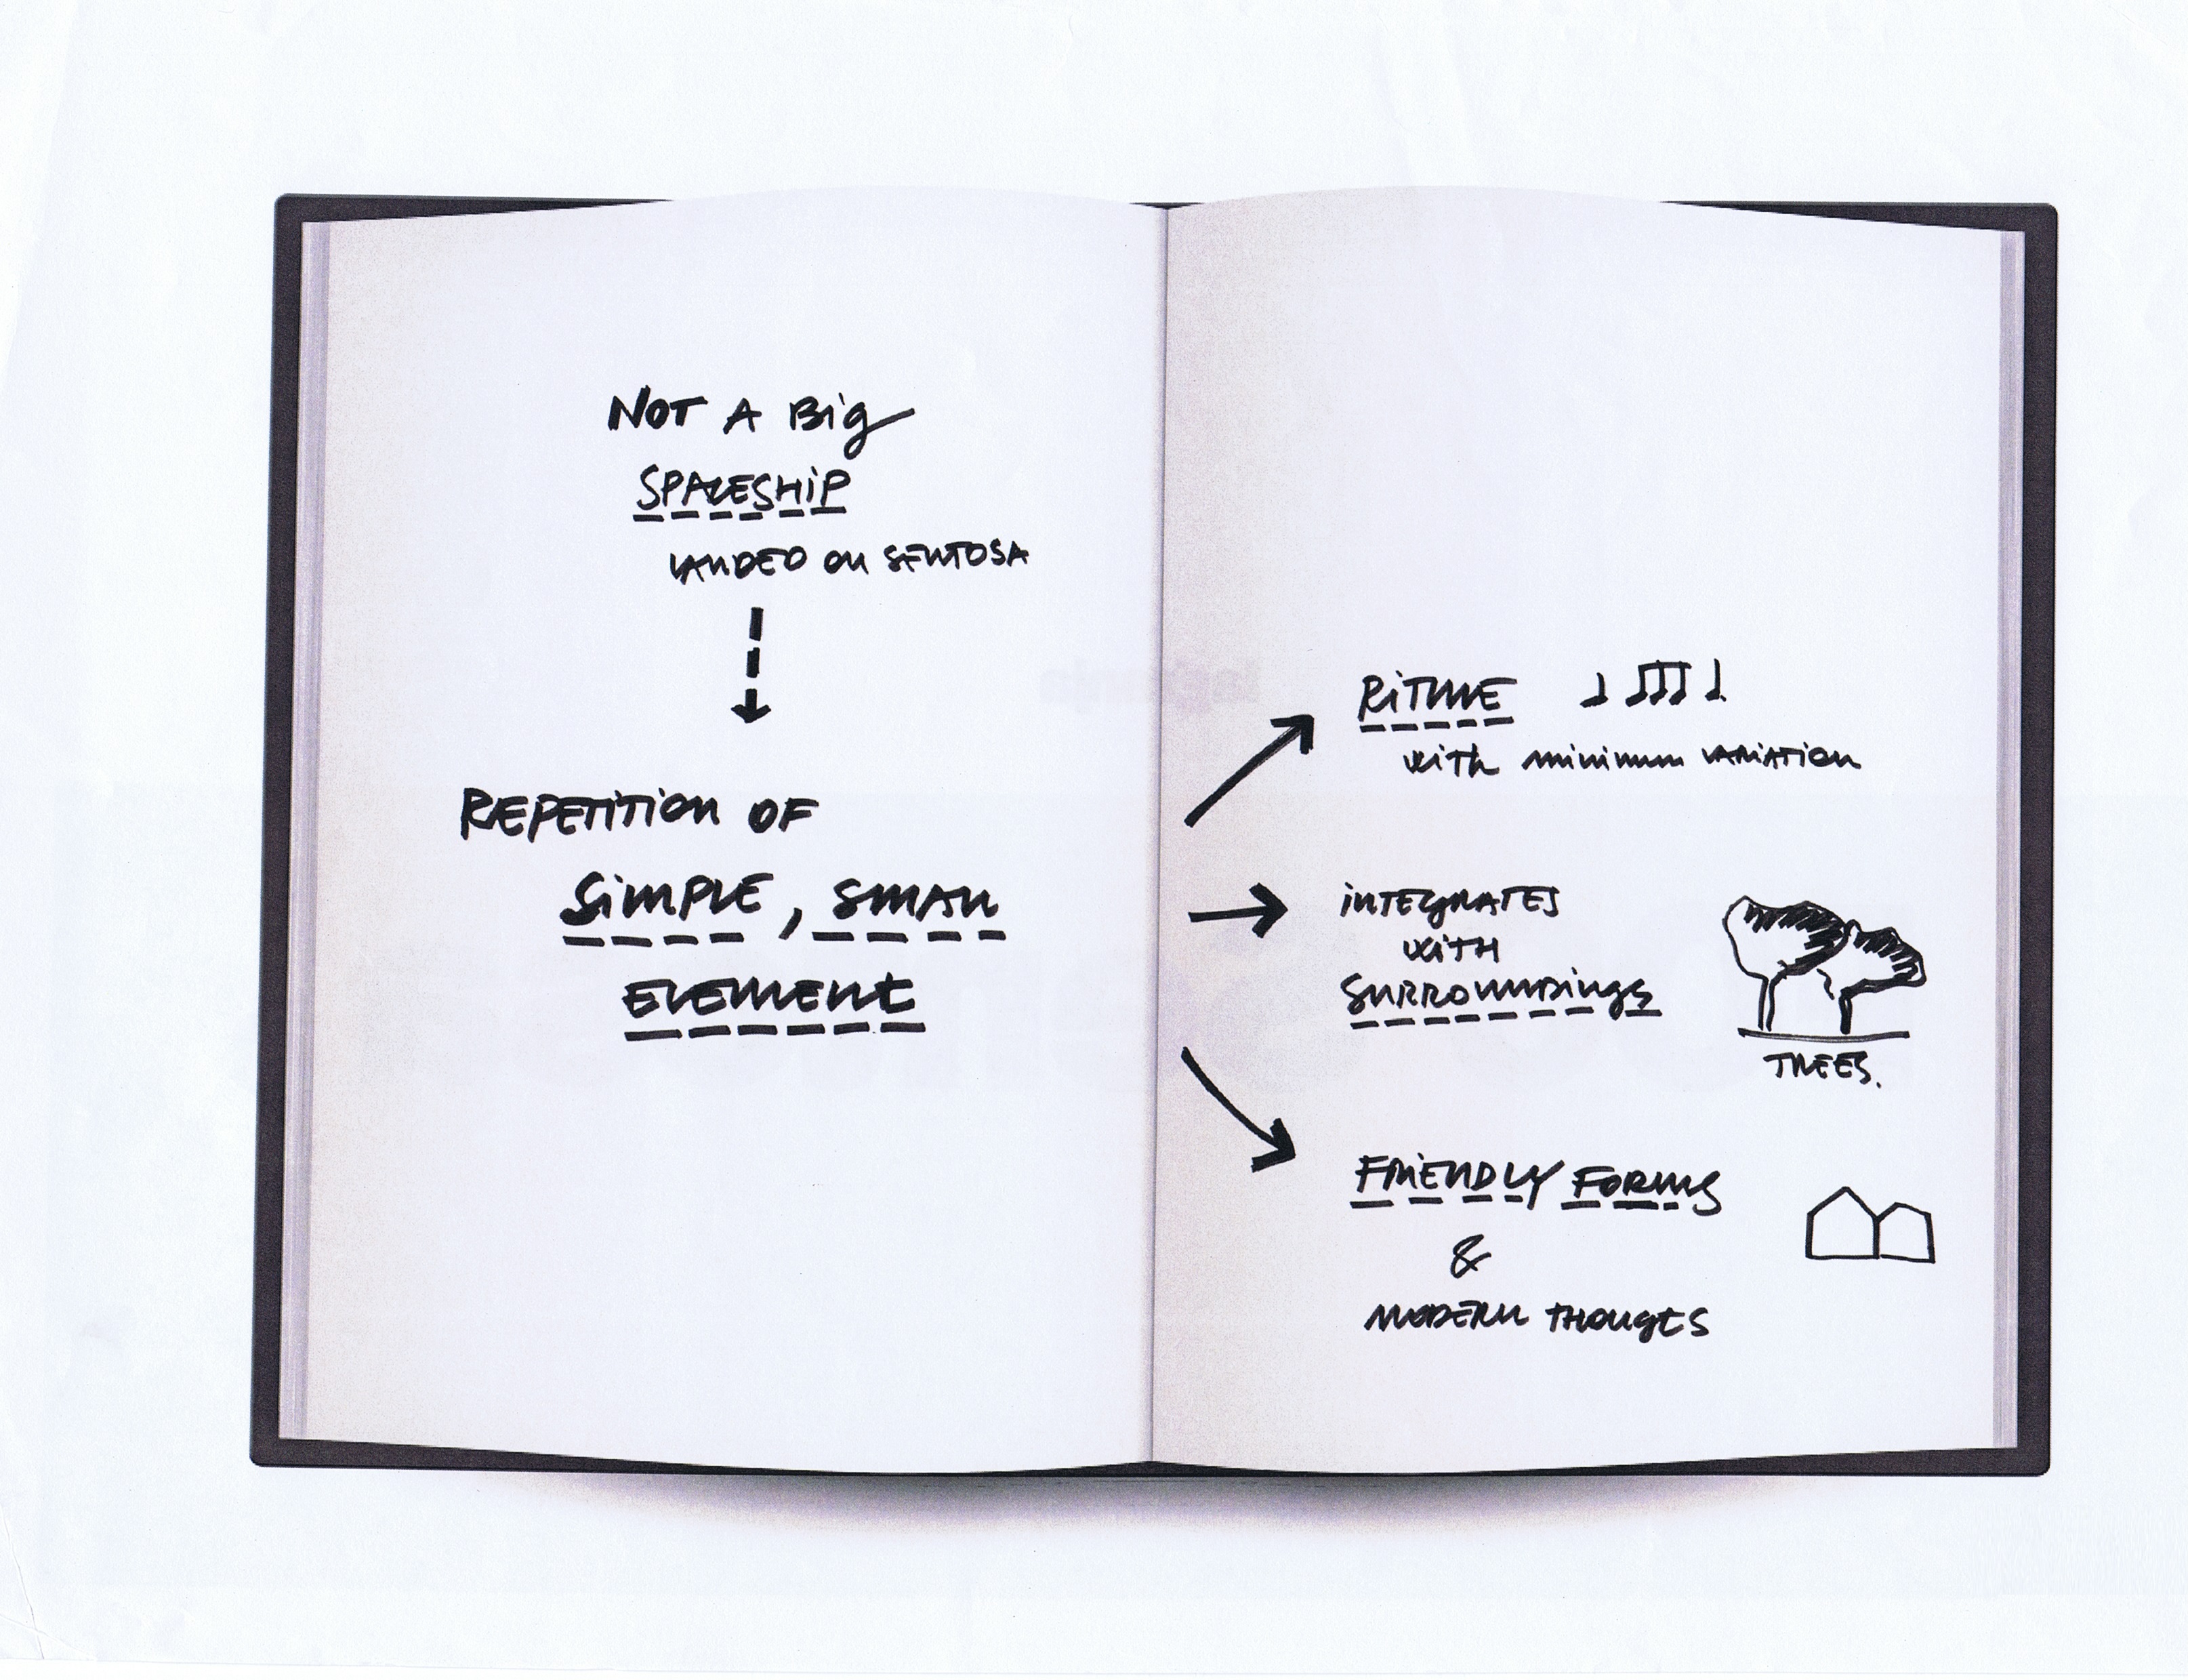 NOT A Big
SPACESHiP
LANDED ON SENTOSA
REPETiTiON OF
SiMPLE, SMALL
ELEMENt
RiTME
with minimum VARiATiON
iNTEGRATES
WiTH
SURROUNDiNgS
TREES.
FRiENDLY FORMS
&
MODERN THOUgtS